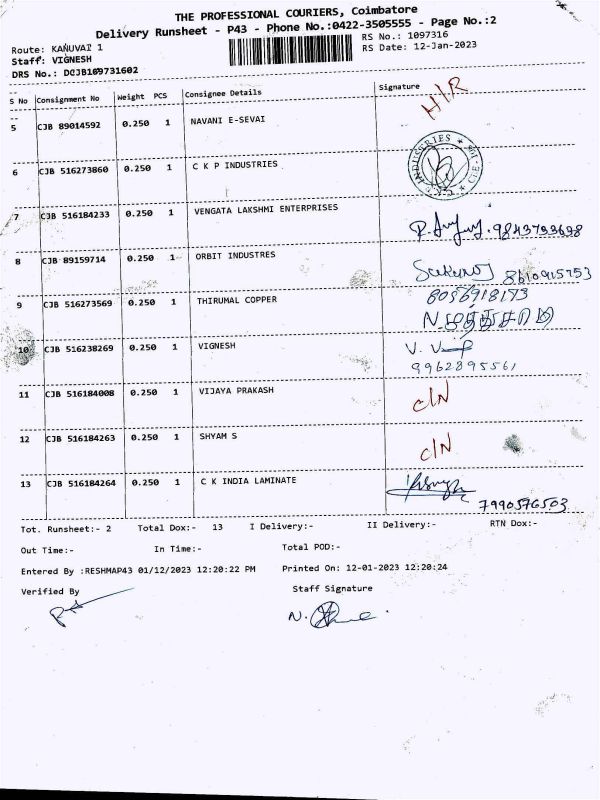 THE PROFESSIONAL COURIERS, Coimbatore
Delivery Runsheet - P43 - Phone No.:0422-3505555 - Page No.:2
Route: KANUVAI 1
RS No.: 1097316
Staff: VIGNESH
RS Date: 12-Jan-2023
DRS No.: DCJB109731602
S No Consignment No Weight PCS Consignee Details Signature
5 CJB 89014592 0.250 1 NAVANI E-SEVAI H/R
6 CJB 516273860 0.250 1 C K P INDUSTRIES
INDUSTRIES
7 CJB 516184233 0.250 1 VENGATA LAKSHMI ENTERPRISES
9843793698
8 CJB 89159714 0.250 1 ORBIT INDUSTRES
8610915753
9 CJB 516273569 0.250 1 THIRUMAL COPPER 8056918173
10 CJB 516238269 0.250 1 VIGNESH
9962895561
11 CJB 516184008 0.250 1 VIJAYA PRAKASH C/N
12 CJB 516184263 0.250 1 SHYAM S C/N
13 CJB 516184264 0.250 1 C K INDIA LAMINATE
7990576503
Tot. Runsheet:- 2 Total Dox:- 13 I Delivery:- II Delivery:- RTN Dox:-
Out Time:- In Time:- Total POD:-
Entered By :RESHMAP43 01/12/2023 12:20:22 PM Printed On: 12-01-2023 12:20:24
Verified By Staff Signature